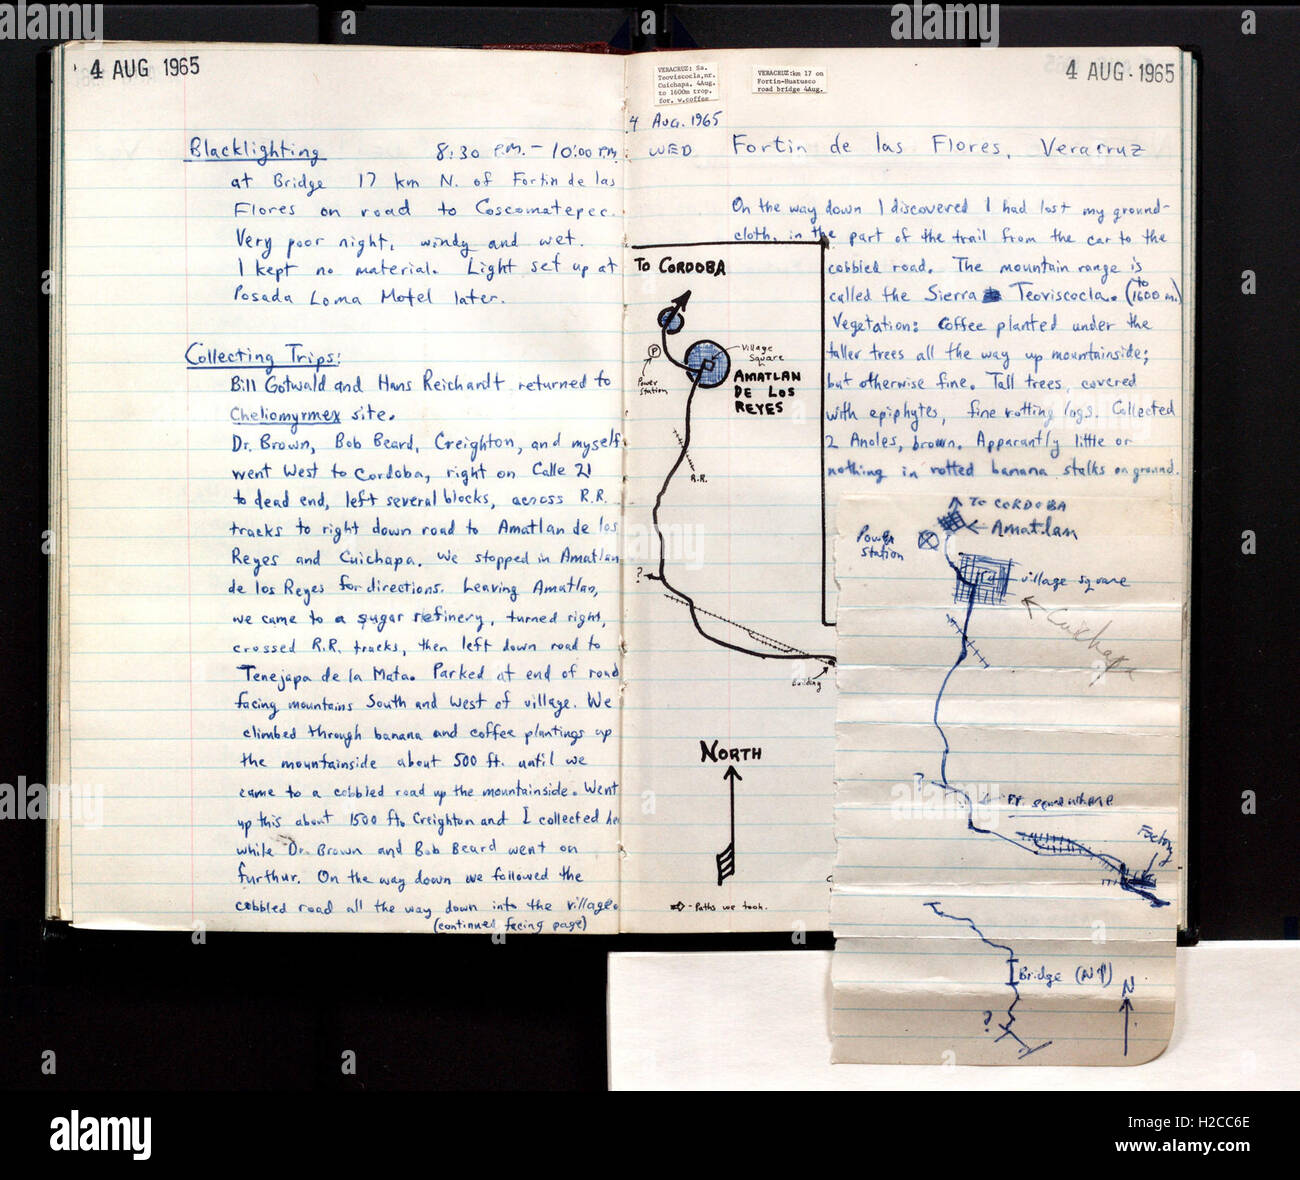 4 AUG 1965
Blacklighting 8:30 P.M. - 10:00 P.M.
at Bridge 17 km N. of Fortin de las
Flores on road to Coscomatepec.
Very poor night, windy and wet.
I kept no material. Light set up at
Posada Loma Motel later.
Collecting Trips:
Bill Gotwald and Hans Reichardt returned to
Cheliomyrmex site.
Dr. Brown, Bob Beard, Creighton, and myself
went West to Cordoba, right on Calle 21
to dead end, left several blocks, across R.R.
tracks to right down road to Amatlan de los
Reyes and Cuichapa. We stopped in Amatlan
de los Reyes for directions. Leaving Amatlan,
we came to a sugar refinery, turned right,
crossed R.R. tracks, then left down road to
Tenejapa de la Mata. Parked at end of road
facing mountains South and West of village. We
climbed through banana and coffee plantings up
the mountainside about 500 ft. until we
came to a cobbled road up the mountainside. Went
up this about 1500 ft. Creighton and I collected here
while Dr. Brown and Bob Beard went on
furthur. On the way down we followed the
cobbled road all the way down into the village.
(continued facing page)
VERACRUZ: Sa.
Teoviscocla,nr.
Cuichapa. 4Aug.
to 1600m trop.
for. w.coffee
VERACRUZ:km 17 on
Fortin-Huatusco
road bridge 4Aug.
4 AUG. 1965
4 Aug. 1965
WED Fortin de las Flores, Veracruz
On the way down I discovered I had lost my ground-
cloth, in the part of the trail from the car to the
cobbled road. The mountain range is
called the Sierra Teoviscocla. (to 1600 m.)
Vegetation: Coffee planted under the
taller trees all the way up mountainside;
but otherwise fine. Tall trees, covered
with epiphytes, fine rotting logs. Collected
2 Anoles, brown. Apparantly little or
nothing in rotted banana stalks on ground.
TO CORDOBA
P
Power
Station
Village
Square
AMATLAN
DE LOS
REYES
R.R.
?
Building
NORTH
- Paths we took.
TO CORDOBA
Amatlan
Power
Station
village square
Cuichapa
?
RR somewhere
Factory
Bridge (N1)
N
?
alamy
a
alamy stock photo
H2CC6E